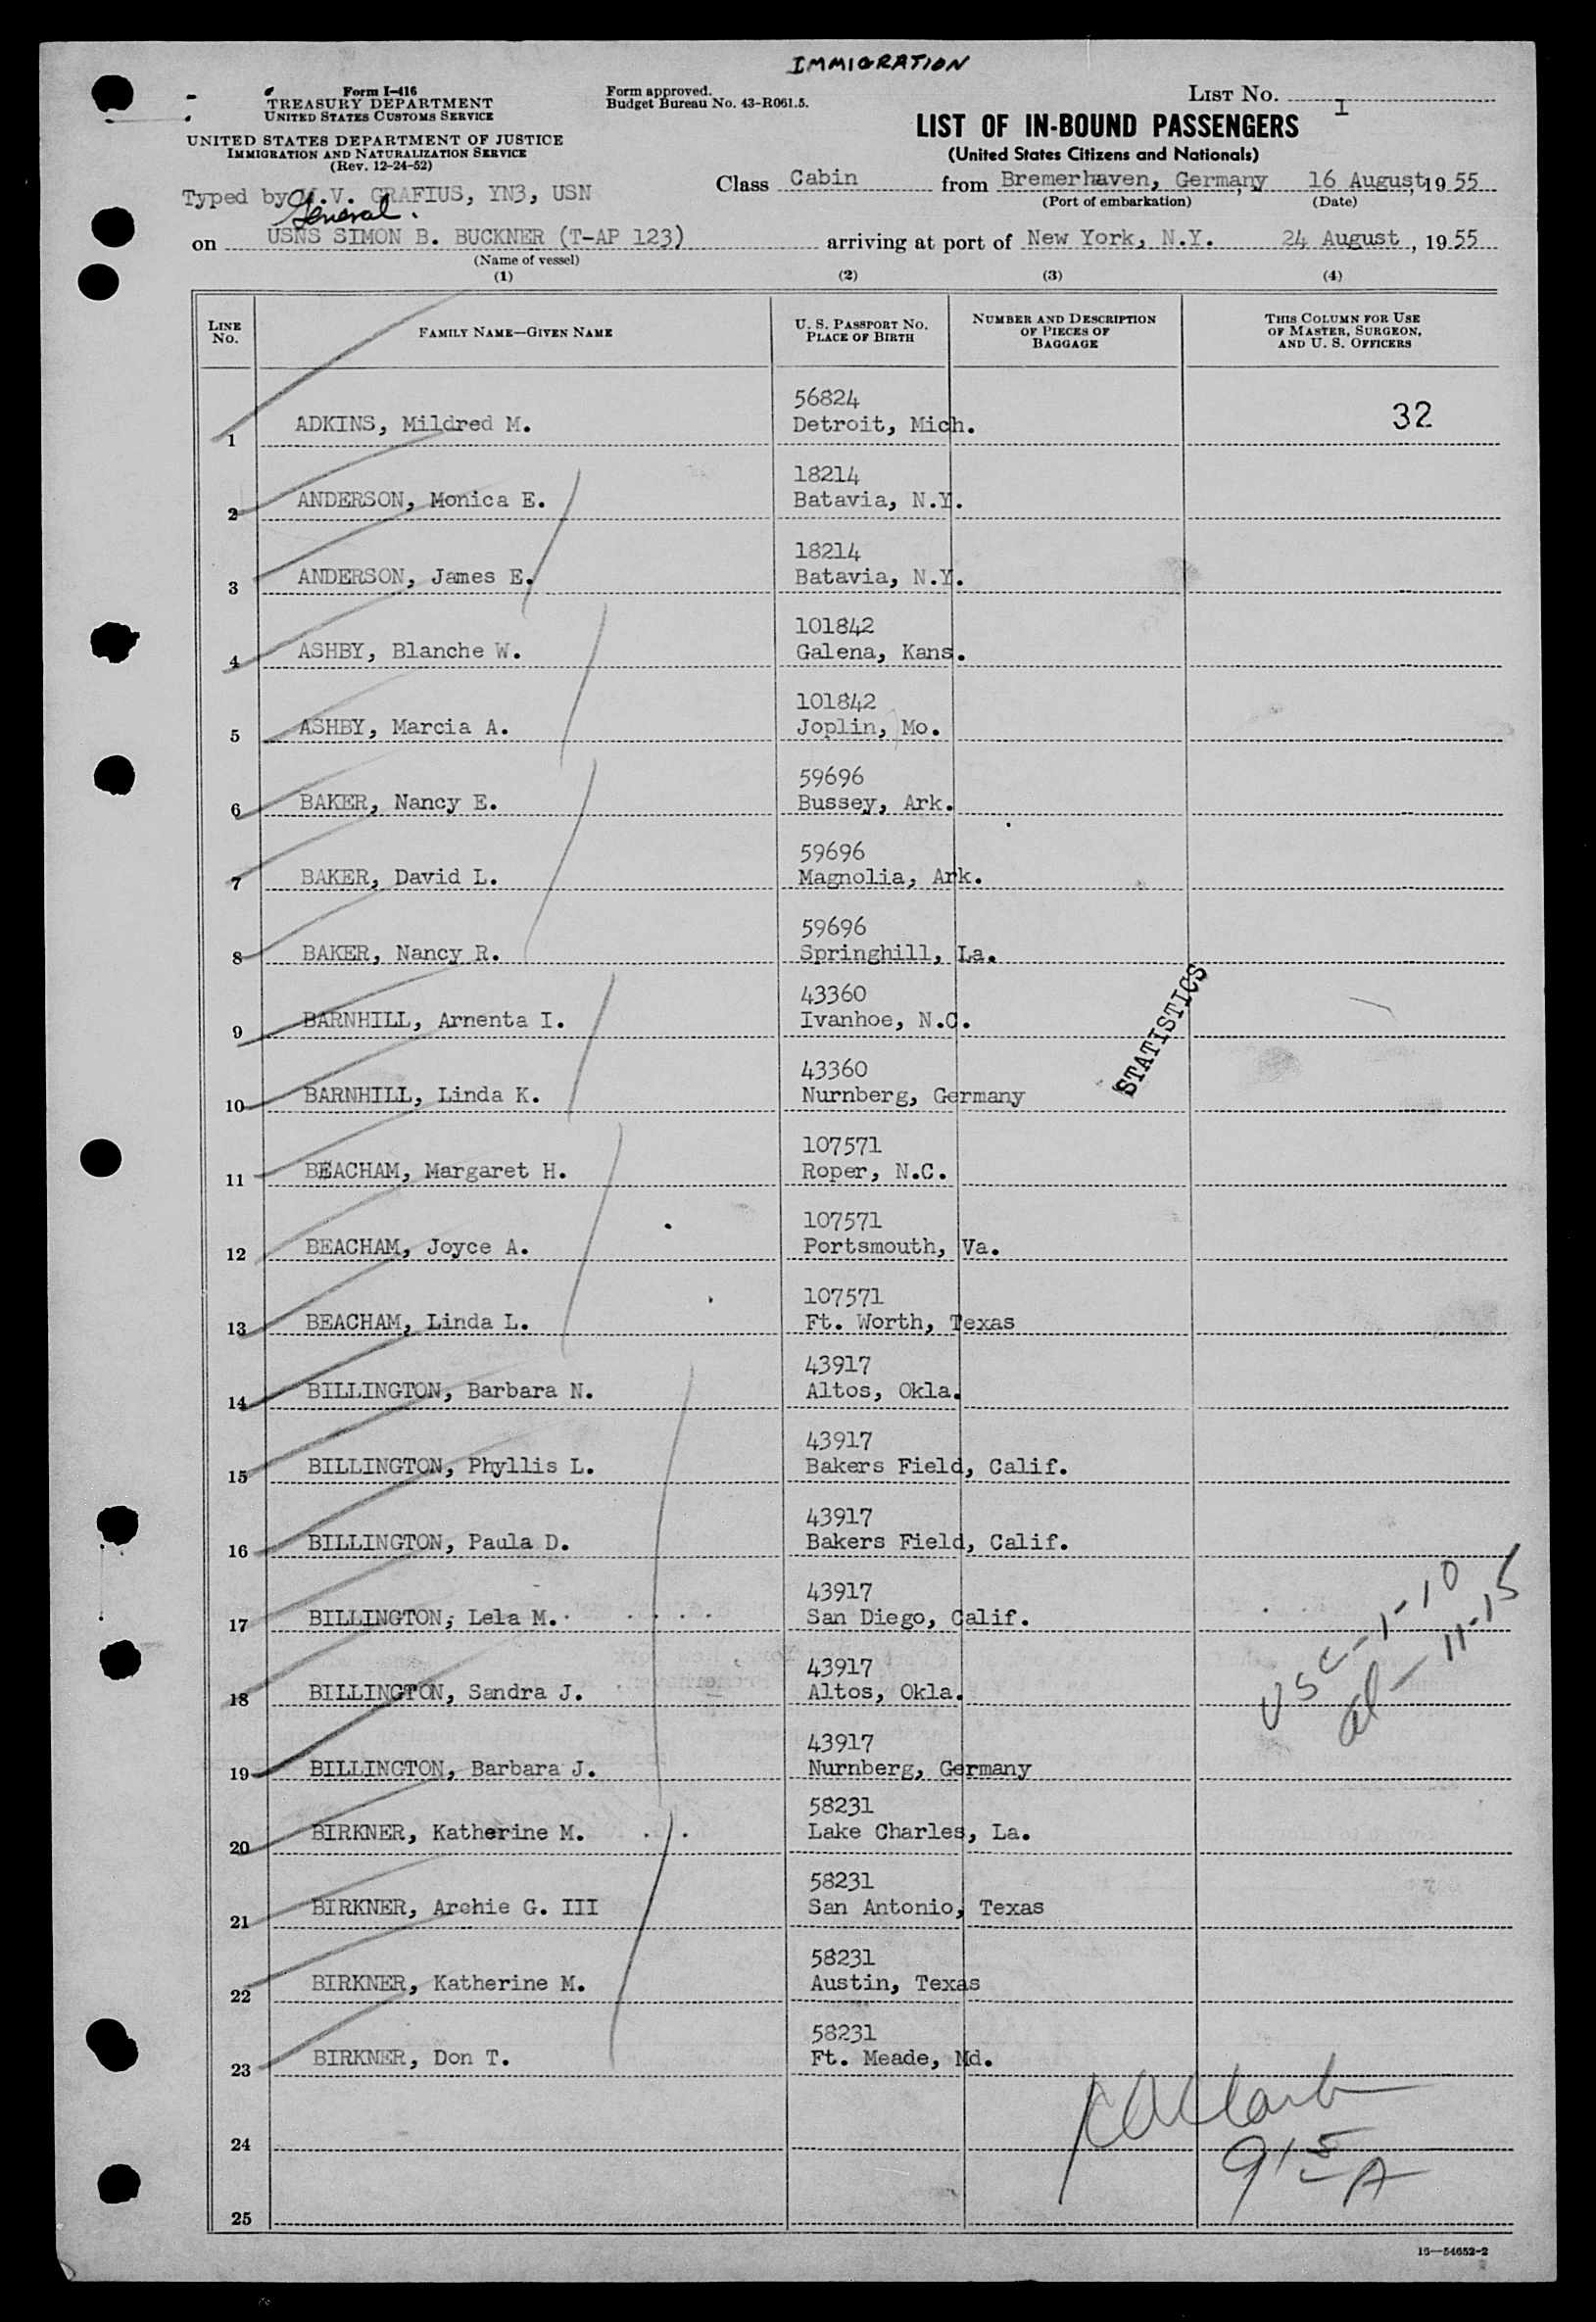 IMMIGRATION
Form I-416
TREASURY DEPARTMENT
UNITED STATES CUSTOMS SERVICE
UNITED STATES DEPARTMENT OF JUSTICE
IMMIGRATION AND NATURALIZATION SERVICE
(Rev. 12-24-52)
Form approved.
Budget Bureau No. 43-R061.5.
LIST NO. I
LIST OF IN-BOUND PASSENGERS
(United States Citizens and Nationals)
Typed by V. GRAFIUS, YN3, USN
Class Cabin from Bremerhaven, Germany, 16 August, 1955
(Port of embarkation) (Date)
General
on USNS SIMON B. BUCKNER (T-AP 123) arriving at port of New York, N.Y. 24 August, 1955
(Name of vessel)
(1) (2) (3) (4)
LINE NO. FAMILY NAME—GIVEN NAME U. S. PASSPORT NO. PLACE OF BIRTH NUMBER AND DESCRIPTION OF PIECES OF BAGGAGE THIS COLUMN FOR USE OF MASTER, SURGEON, AND U. S. OFFICERS
56824
1 ADKINS, Mildred M. Detroit, Mich. 32
18214
2 ANDERSON, Monica E. Batavia, N.Y.
18214
3 ANDERSON, James E. Batavia, N.Y.
101842
4 ASHBY, Blanche W. Galena, Kans.
101842
5 ASHBY, Marcia A. Joplin, Mo.
59696
6 BAKER, Nancy E. Bussey, Ark.
59696
7 BAKER, David L. Magnolia, Ark.
59696
8 BAKER, Nancy R. Springhill, La.
43360
9 BARNHILL, Arnenta I. Ivanhoe, N.C.
STATISTICS
43360
10 BARNHILL, Linda K. Nurnberg, Germany
107571
11 BEACHAM, Margaret H. Roper, N.C.
107571
12 BEACHAM, Joyce A. Portsmouth, Va.
107571
13 BEACHAM, Linda L. Ft. Worth, Texas
43917
14 BILLINGTON, Barbara N. Altos, Okla.
43917
15 BILLINGTON, Phyllis L. Bakers Field, Calif.
43917
16 BILLINGTON, Paula D. Bakers Field, Calif.
43917
17 BILLINGTON, Lela M. San Diego, Calif.
USC-1-10
al-11-15
43917
18 BILLINGTON, Sandra J. Altos, Okla.
43917
19 BILLINGTON, Barbara J. Nurnberg, Germany
58231
20 BIRKNER, Katherine M. Lake Charles, La.
58231
21 BIRKNER, Archie G. III San Antonio, Texas
58231
22 BIRKNER, Katherine M. Austin, Texas
58231
23 BIRKNER, Don T. Ft. Meade, Md.
24
915 A
25
16—54652-2